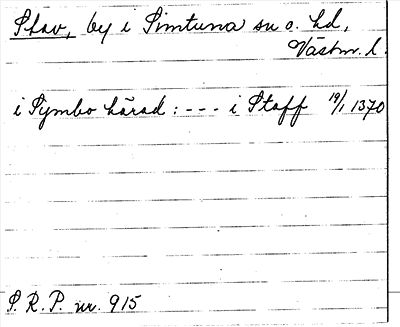 Stav, by i Simtuna sn o. hd,
Västm. l.
i Symbo härad : --- i Staff 19/1 1370
S. R. P. nr. 915